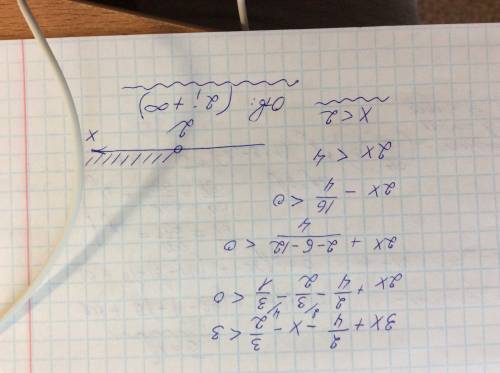 3x + 2/4 - x - 3/2 > 3
2x + 2/4 - 3/2 \2 - 3/1 \4 > 0
2x + 2-6-12/4 > 0
2x - 16/4 > 0
2x > 4
x > 2
2 x
Отв: (2; +∞)